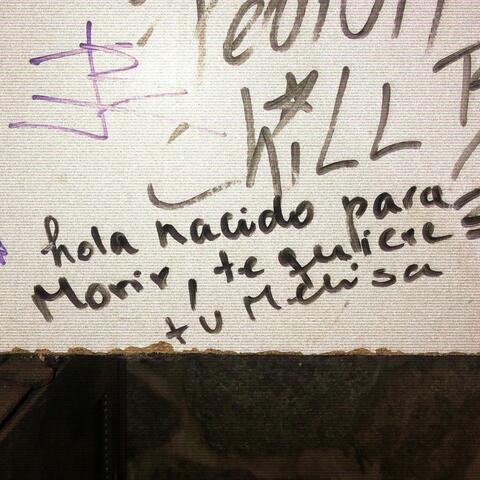 KiLL
hola nacido para
Morir, te quiere
tu Melisa